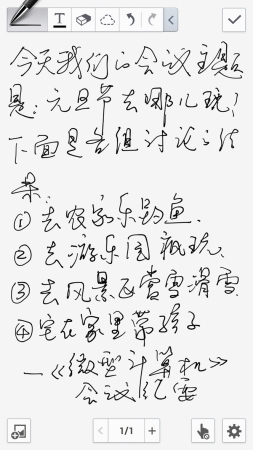 T
今天我们的会议主题
是:元旦节去哪儿玩?
下面是各组讨论之结
果:
① 去农家乐钓鱼.
② 去游乐园疯玩.
③ 去风景区赏雪滑雪
④ 宅在家里带孩子
—《微型计算机》
会议纪要
1/1